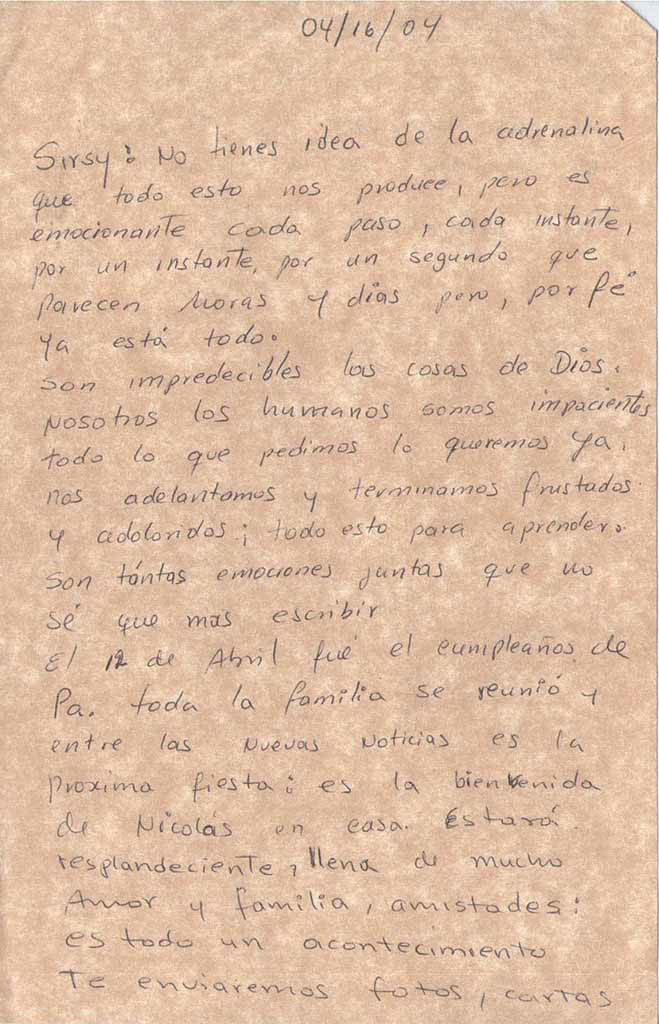 04/16/04
Sirsy: No tienes idea de la adrenalina
que todo esto nos produce, pero es
emocionante cada paso, cada instante,
por un instante, por un segundo que
parecen horas y días pero, por fé
ya está todo.
son impredecibles las cosas de Dios.
Nosotros los humanos somos impacientes
todo lo que pedimos lo queremos ya.
nos adelantamos y terminamos frustados
y adoloridos; todo esto para aprender.
son tántas emociones juntas que no
sé que mas escribir
El 12 de Abril fué el cumpleaños de
Pa. toda la familia se reunió y
entre las Nuevas Noticias es la
proxima fiesta: es la bienvenida
de Nicolás en casa. Estará
resplandeciente, llena de mucho
Amor y familia, amistades:
es todo un acontecimiento
Te enviaremos fotos, cartas